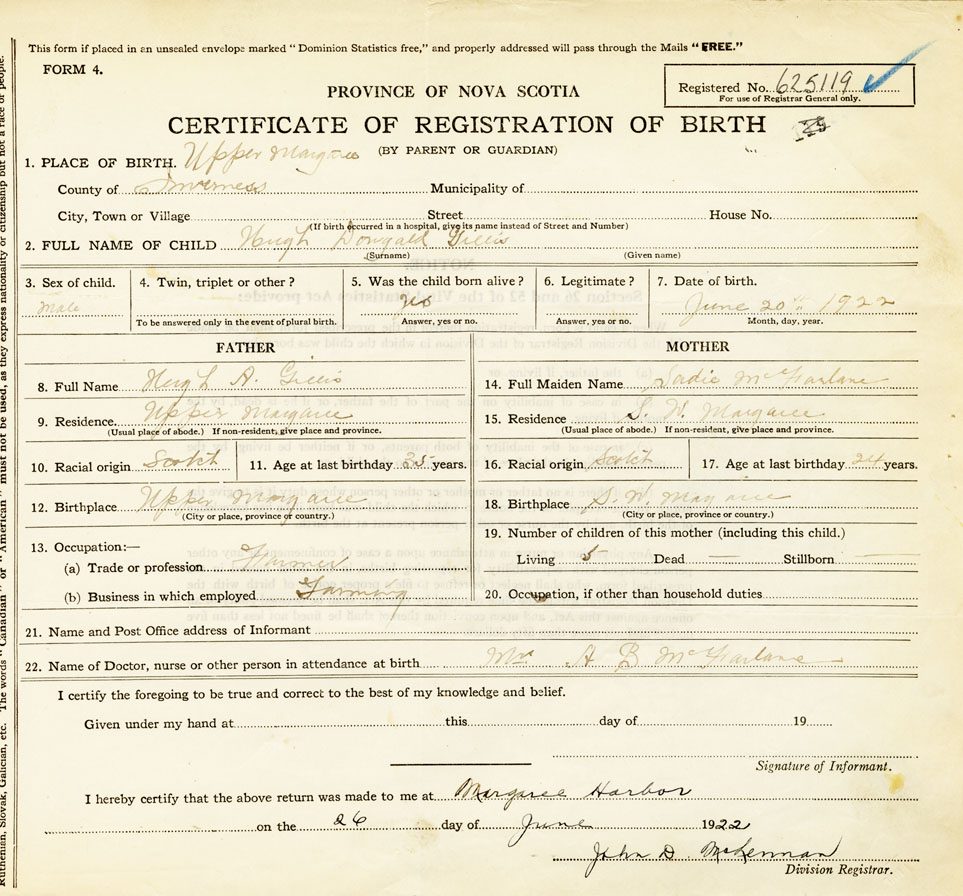 This form if placed in an unsealed envelope marked "Dominion Statistics free," and properly addressed will pass through the Mails "FREE."
FORM 4.
Registered No. 625119
For use of Registrar General only.
PROVINCE OF NOVA SCOTIA
CERTIFICATE OF REGISTRATION OF BIRTH
(BY PARENT OR GUARDIAN)
1. PLACE OF BIRTH. Upper Margaree
County of Inverness Municipality of
City, Town or Village Street House No.
(If birth occurred in a hospital, give its name instead of Street and Number)
2. FULL NAME OF CHILD Hugh Dougald Gillis
(Surname) (Given name)
3. Sex of child. 4. Twin, triplet or other? 5. Was the child born alive? 6. Legitimate? 7. Date of birth.
Male yes June 20th 1922
To be answered only in the event of plural birth. Answer, yes or no. Answer, yes or no. Month, day, year.
FATHER
8. Full Name Hugh A. Gillis
9. Residence Upper Margaree
(Usual place of abode.) If non-resident, give place and province.
10. Racial origin Scotch 11. Age at last birthday 35 years.
12. Birthplace Upper Margaree
(City or place, province or country.)
13. Occupation:—
(a) Trade or profession Farmer
(b) Business in which employed Farming
MOTHER
14. Full Maiden Name Sadie McFarlane
15. Residence S. W. Margaree
(Usual place of abode.) If non-resident, give place and province.
16. Racial origin Scotch 17. Age at last birthday 24 years.
18. Birthplace S. W. Margaree
(City or place, province or country.)
19. Number of children of this mother (including this child.)
Living Dead — Stillborn —
20. Occupation, if other than household duties
21. Name and Post Office address of Informant
22. Name of Doctor, nurse or other person in attendance at birth Mrs A B McFarlane
I certify the foregoing to be true and correct to the best of my knowledge and belief.
Given under my hand at this day of 19
Signature of Informant.
I hereby certify that the above return was made to me at Margaree Harbor
on the 26 day of June 1922
John D McLennan
Division Registrar.
Ruthenian, Slovak, Galician, etc. The words "Canadian" or "American" must not be used, as they express nationality or citizenship but not a race or people.